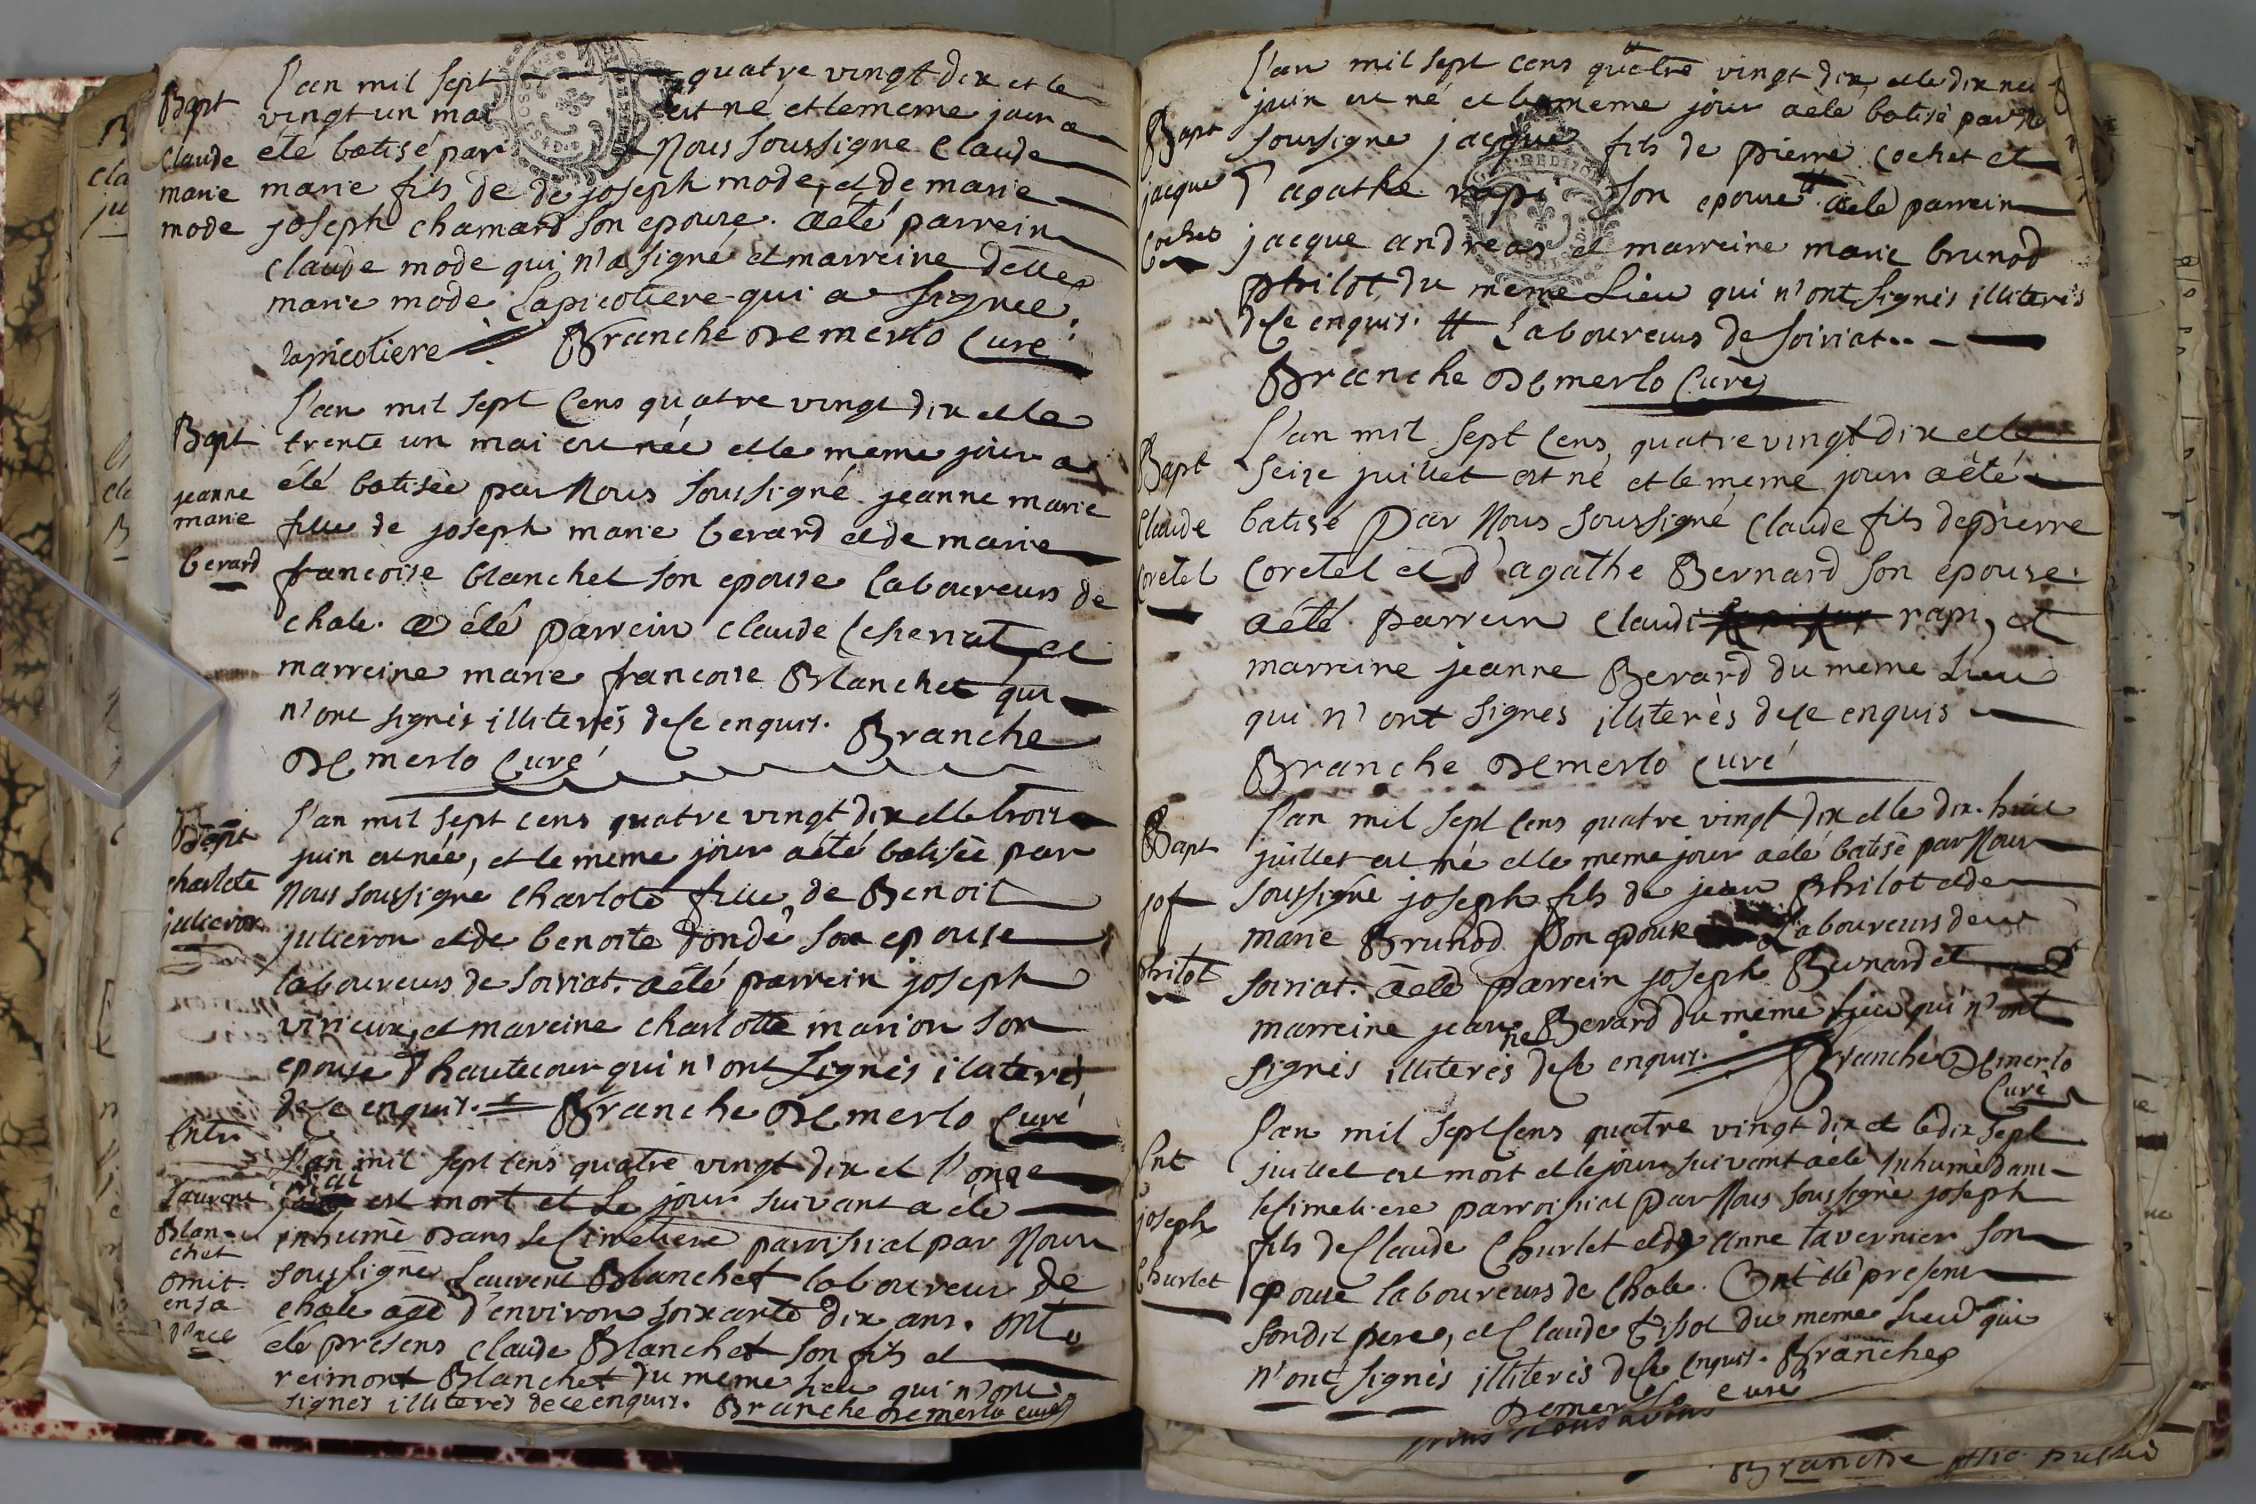 Bapt
claude
marie
mode
L'an mil sept quatre vingt dix et le
vingt un mai est né, et le meme jour a
eté batisé par Nous soussigne claude
marie fils de de joseph mode, et de marie
joseph chamard son epouse. a eté parrein
claude mode qui n'a signé et marreine delle
marie mode Lapicotiere qui a signee.
lapicotiere Branche Demerlo Curé
Bapt
jeanne
marie
berard
L'an mil sept Cens quatre vingt dix et le
trente un mai est née et le meme jour a
été batisée par Nous soussigné jeanne marie
fille de joseph marie berard et de marie
francoise blanchet son epouse laboureurs de
chale. a été parrein claude chenat et
marreine marie francoise Blanchet qui
n'ont signés illiterés de ce enquis. Branche
Demerlo Curé
Bapt
charlote
julieron
L'an mil sept cens quatre vingt dix et le trois
juin est née, et le meme jour a été batisée par
Nous soussigne charlote fille de Benoit
julieron et de benoite dondé son epouse
laboureurs de soiriat. a eté parrein joseph
virieux, et mareine charlotte marion son
epouse d'hautecour qui n'ont signés ilaterés
de ce enquis. Branche Demerlo Curé
Entr
Laurent
Blan-
chet
omit
en sa
place
L'an mil sept cens quatre vingt dix et l'onze
mai est mort et le jour suivant a été
inhumé dans le Cimetiere paroissial par Nous
soussigné Laurent Blanchet laboureur de
chale agé d'environ soixante dix ans. ont
été presens claude Blanchet son fils et
reimont Blanchet du meme lieu qui n'ont
signés illiterés de ce enquis. Branche Demerlo curé
Bapt
jacque
Cochet
L'an mil sept cens quatre vingt dix, et le dix neuf
juin est né et le meme jour a été batisé par No
soussigne jacque fils de pierre cochet et
d'agathe rapi son epouse # a ete parrein
jacque andreas et marreine marie brunod
philot du meme Lieu qui n'ont signés illiterés
de ce enquis. # Laboureurs de soiriat..
Branche Demerlo Curé
Bapt
Claude
Coretel
L'an mil sept Cens quatre vingt dix et le
seize juillet est né et le meme jour a été
batisé par Nous soussigné Claude fils de pierre
Coretel et d'agathe Bernard son epouse.
a été parrein Claude rapi, et
marreine jeanne Berard du meme Lieu
qui n'ont signés illiterés de ce enquis
Branche Demerlo curé
Bapt
jos
philot
L'an mil sept Cens quatre vingt dix et le dix-huit
juillet est né et le meme jour a été batisé par Nous
soussigné joseph fils de jean Philot et de
marie Brunod son epouse Laboureurs de
soiriat. a été parrein joseph Bernard et
marreine jeanne Berard du meme Lieu qui n'ont
signés illiterés de ce enquis. Branche Demerlo
Curé
Ent
joseph
Churlet
L'an mil sept Cens quatre vingt dix et le dix sept
juillet est mort et le jour suivant a été Inhumé dans
le simetiere parroissial par Nous soussigné joseph
fils de Claude Churlet et de anne tavernier son
epouse laboureurs de Chale. Ont été presens
son dit pere, et Claude tissot du meme Lieu qui
n'ont signés illiterés de ce enquis. Branche
Demerlo curé
nous avons
Branche